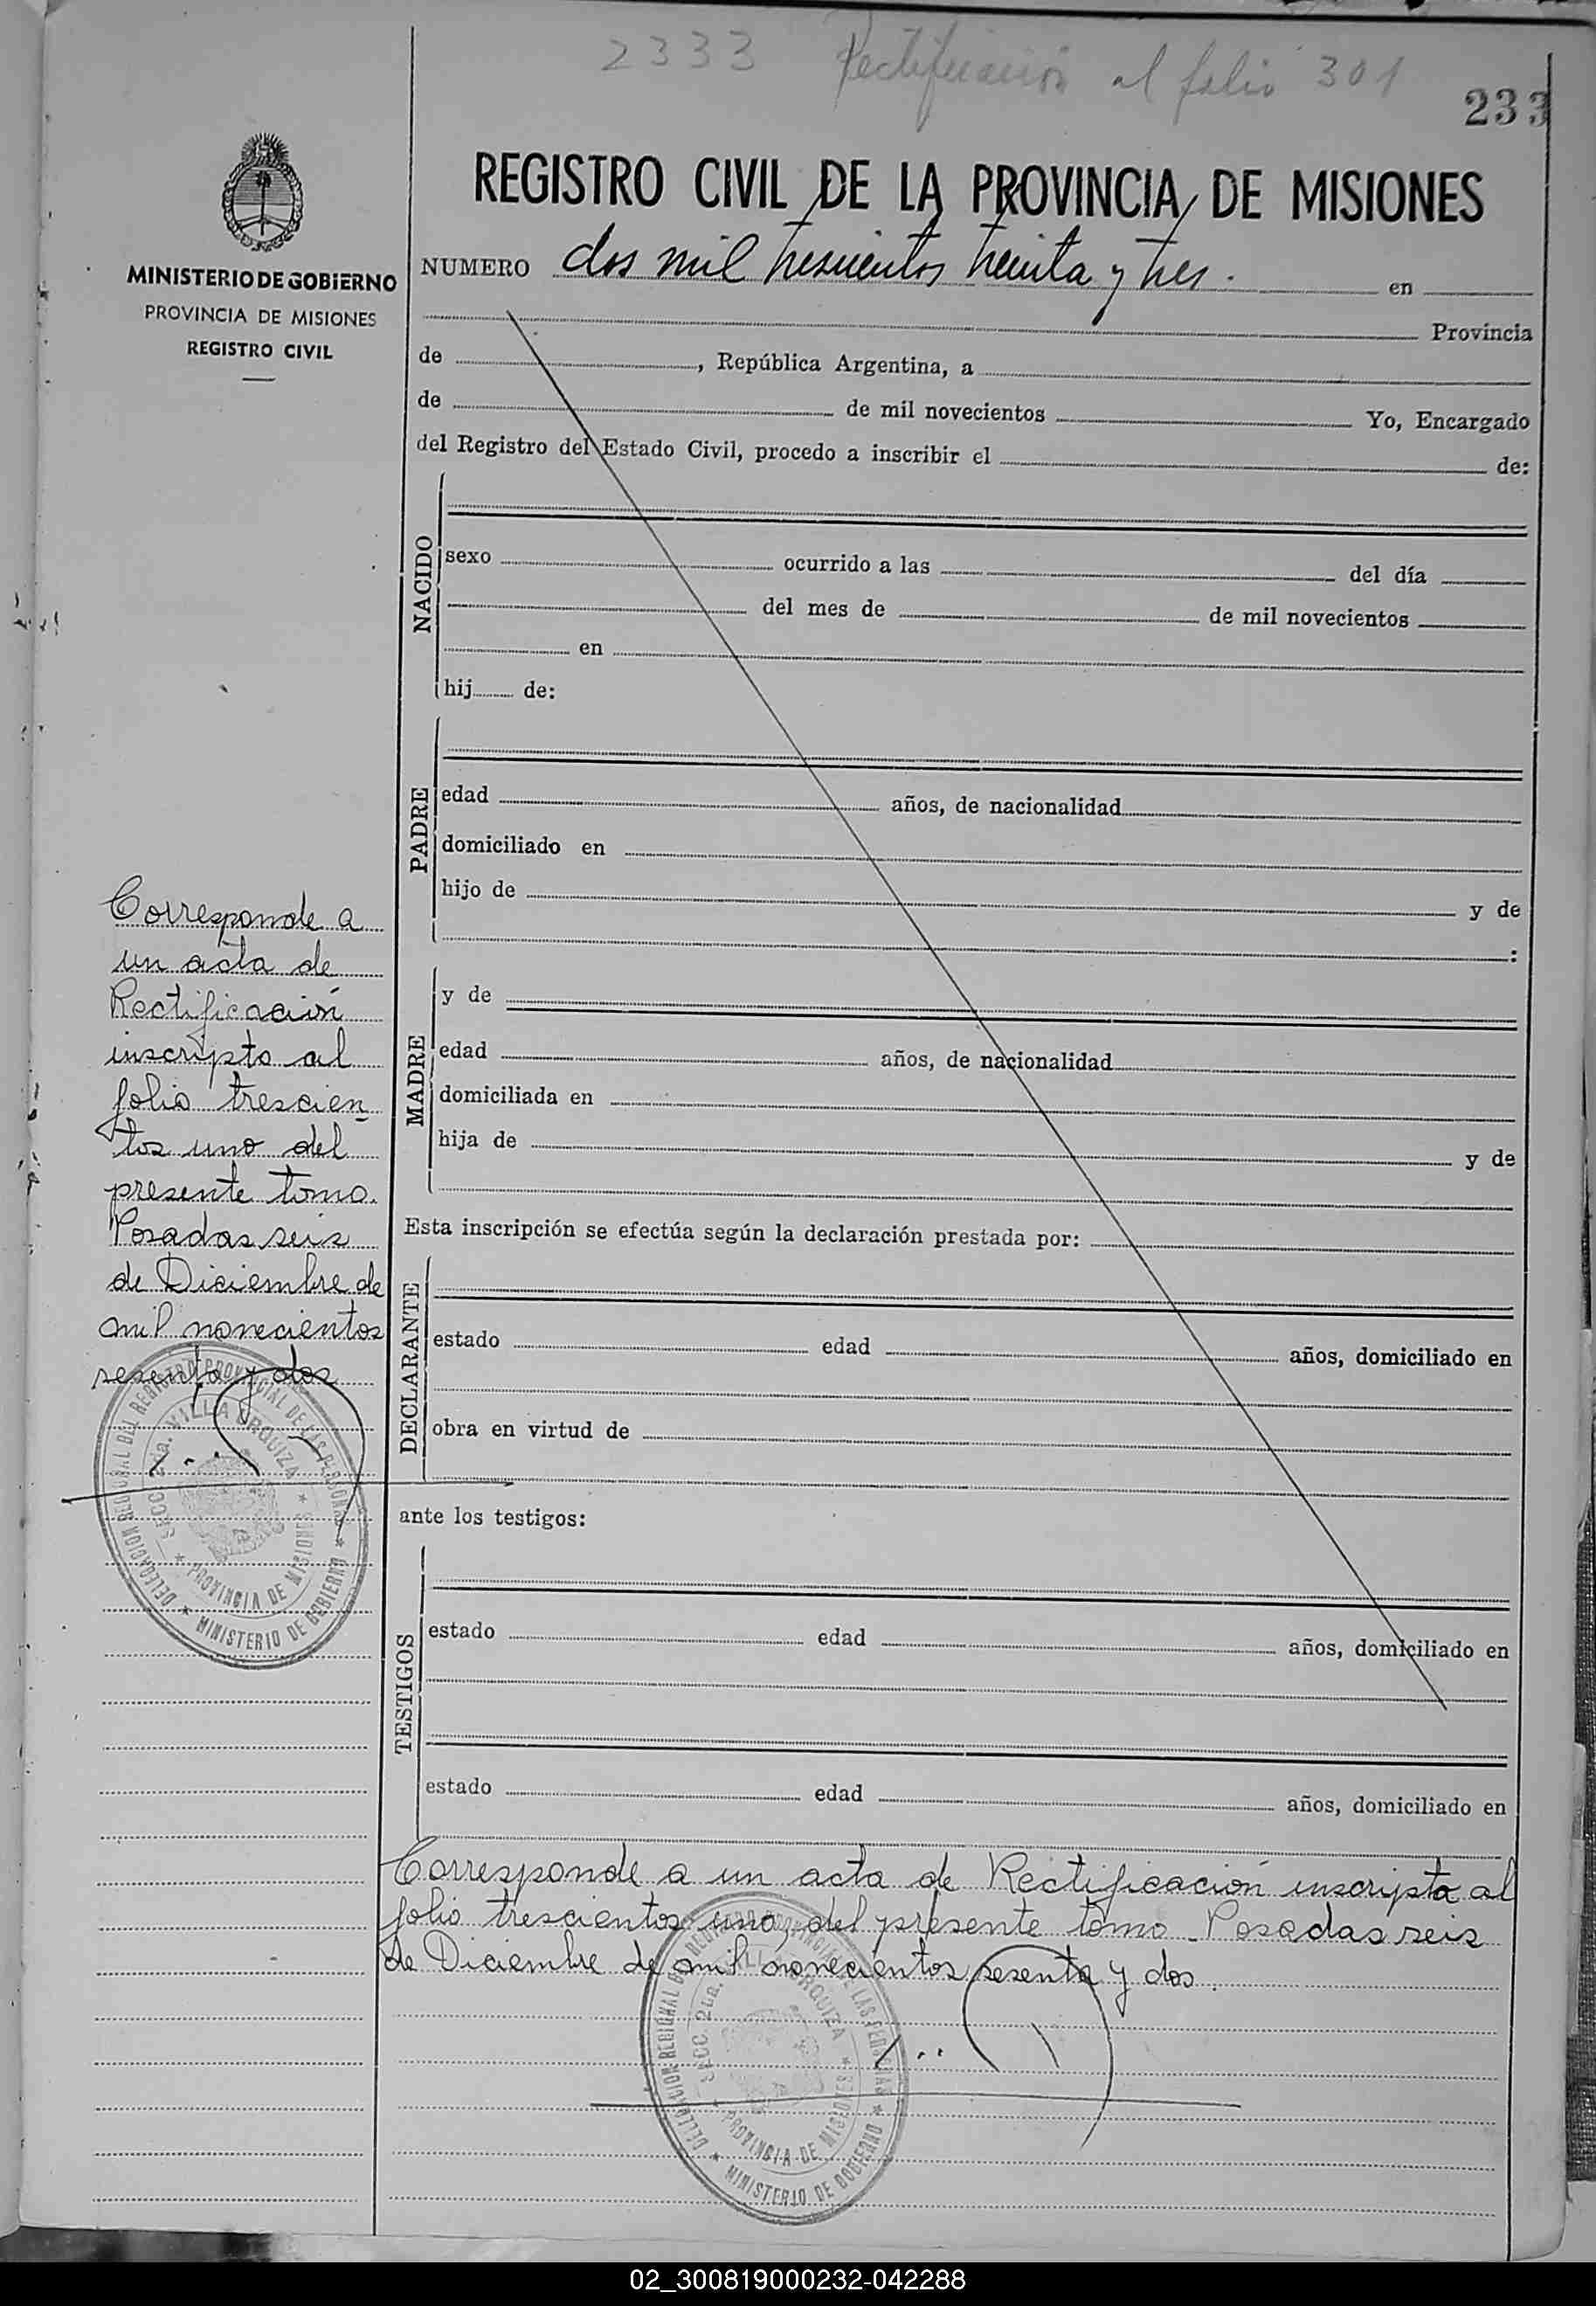 2333 Rectificación al folio 301
233
MINISTERIO DE GOBIERNO
PROVINCIA DE MISIONES
REGISTRO CIVIL
REGISTRO CIVIL DE LA PROVINCIA DE MISIONES
NUMERO dos mil trescientos treinta y tres. en
Provincia
de , República Argentina, a
de de mil novecientos Yo, Encargado
del Registro del Estado Civil, procedo a inscribir el de:
NACIDO
sexo ocurrido a las del día
del mes de de mil novecientos
en
hij de:
PADRE
edad años, de nacionalidad
domiciliado en
hijo de y de
:
MADRE
y de
edad años, de nacionalidad
domiciliada en
hija de y de
Esta inscripción se efectúa según la declaración prestada por:
DECLARANTE
estado edad años, domiciliado en
obra en virtud de
ante los testigos:
TESTIGOS
estado edad años, domiciliado en
estado edad años, domiciliado en
Corresponde a
un acta de
Rectificación
inscripta al
folio trescien
tos uno del
presente tomo.
Posadas seis
de Diciembre de
mil novecientos
sesenta y dos
DELEGACION REGIONAL DEL REGISTRO PROVINCIAL DE LAS PERSONAS * MINISTERIO DE GOBIERNO *
SECC. 2da. VILLA URQUIZA * PROVINCIA DE MISIONES *
Corresponde a un acta de Rectificación inscripta al
folio trescientos uno, del presente tomo. Posadas seis
de Diciembre de mil novecientos sesenta y dos.
DELEGACION REGIONAL DEL REGISTRO PROVINCIAL DE LAS PERSONAS * MINISTERIO DE GOBIERNO *
SECC. 2da. VILLA URQUIZA * PROVINCIA DE MISIONES *
02_300819000232-042288